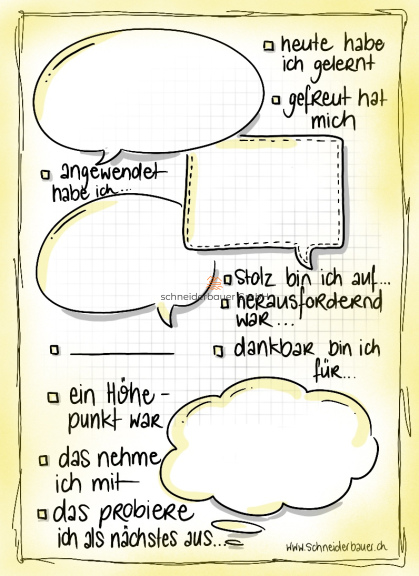 heute habe
ich gelernt
gefreut hat
mich
angewendet
habe ich...
stolz bin ich auf...
schneiderbauer
herausfordernd
war...
dankbar bin ich
für...
ein Höhe-
punkt war
das nehme
ich mit
das probiere
ich als nächstes aus...
www.schneiderbauer.ch